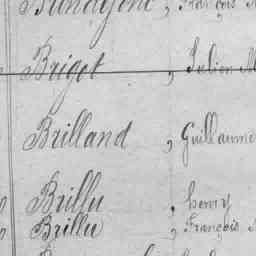 Brigot , Julien M
Brilland , Guillaume
Brillu , henry
Brillu , François